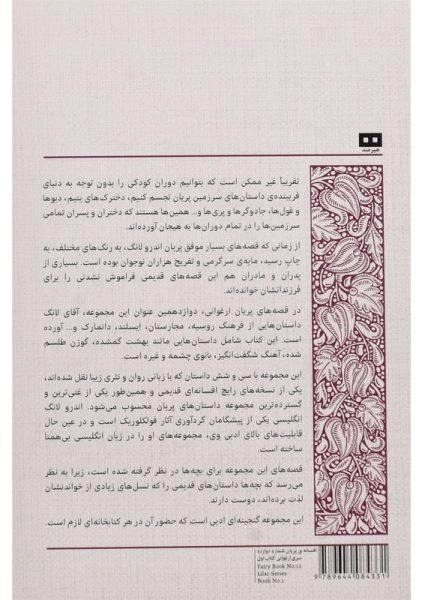 هیرمند
تقریباً غیر ممکن است که بتوانیم دوران کودکی را بدون توجه به دنیای
فریبنده‌ی داستان‌های سرزمین پریان تجسم کنیم، دخترک‌های یتیم، دیوها
و غول‌ها، جادوگرها و پری‌ها و... همین‌ها هستند که دختران و پسران تمامی
سرزمین‌ها را در تمام دوران‌ها به هیجان آورده‌اند.
از زمانی که قصه‌های بسیار موفق پریان اندرو لانگ، به رنگ‌های مختلف، به
چاپ رسید، مایه‌ی سرگرمی و تفریح هزاران نوجوان بوده است. بسیاری از
پدران و مادران هم این قصه‌های قدیمی فراموش نشدنی را برای
فرزندانشان خوانده‌اند.
در قصه‌های پریان ارغوانی، دوازدهمین عنوان این مجموعه، آقای لانگ
داستان‌هایی از فرهنگ روسیه، مجارستان، ایسلند، دانمارک و... آورده
است. این کتاب شامل داستان‌هایی مانند بهشت گمشده، گوزن طلسم
شده، آهنگ شگفت‌انگیز، بانوی چشمه و غیره است.
این مجموعه با سی و شش داستان که با زبانی روان و نثری زیبا نقل شده‌اند،
یکی از نسخه‌های رایج افسانه‌ای قدیمی و همین‌طور یکی از غنی‌ترین و
گسترده‌ترین مجموعه داستان‌های پریان محسوب می‌شود. اندرو لانگ
انگلیسی یکی از پیشگامان گردآوری آثار فولکلوریک است و در عین حال
قابلیت‌های بالای ادبی وی، مجموعه‌های او را در زبان انگلیسی بی‌همتا
ساخته است.
قصه‌های این مجموعه برای بچه‌ها در نظر گرفته شده است، زیرا به نظر
می‌رسد که بچه‌ها داستان‌های قدیمی را که نسل‌های زیادی از خواندنشان
لذت برده‌اند، دوست دارند.
این مجموعه گنجینه‌ای ادبی است که حضور آن در هر کتابخانه‌ای لازم است.
افسانه‌ی پریان شماره دوازده
سری ارغوانی کتاب اول
Fairy Book No:12
Lilac Series
Book No.1
9 789644 084331